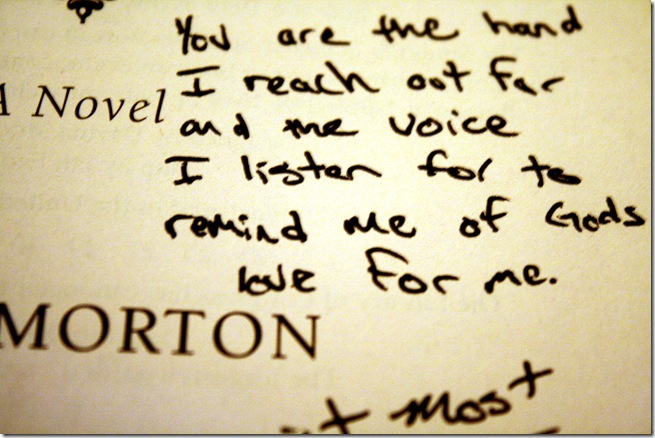 You are the hand
I reach out for
A Novel
and the voice
I listen for to
remind me of Gods
love for me.
MORTON
most